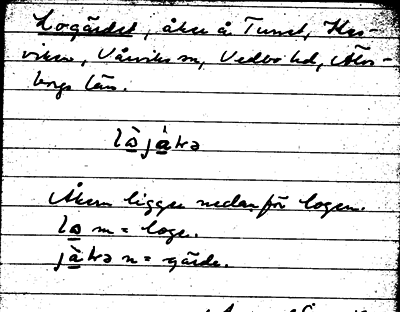 Logärdet, åker å Turset, Hes-
viken, Vårviks sn, Vedbo hd, Älvs-
borgs län.
lòjàtɽə
Åkern ligger nedanför logen.
lo m = loge.
jàtɽə n = gärde.